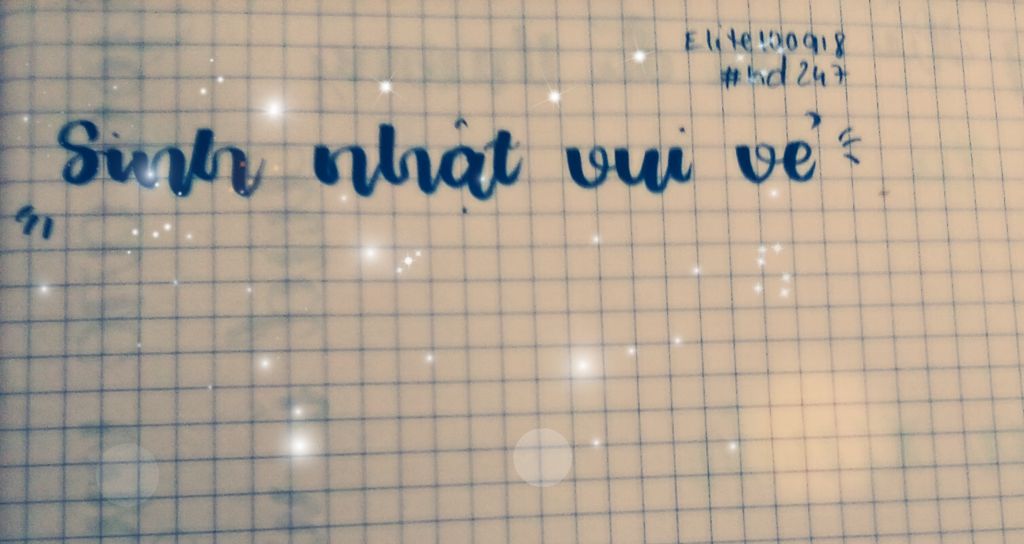 Elite100918
#hd247
Sinh nhật vui vẻ